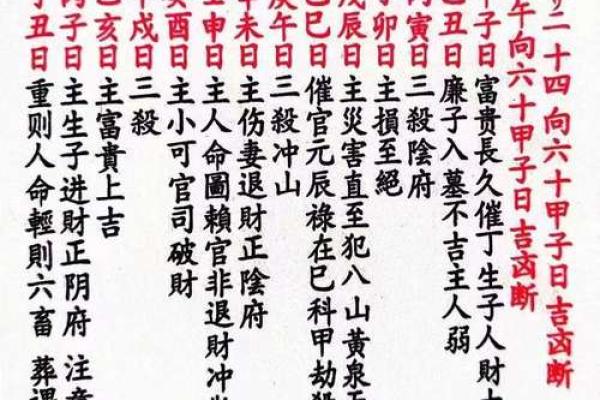 二十四向六十甲子日吉凶断
午向六十甲子日吉凶断
子日富貴長久催丁生子人財
丑日廉子入墓不吉主人弱
寅日三殺陰府
卯日主損至絕
戊辰日主災害直至犯八山黃泉
巳日催官元辰祿在巳科甲劫
午日三殺冲山
未日主伤妻退財正陰府
申日主人命圖賴官非退財冲
酉日主小可官司破財
戌日三殺
亥日主富貴上吉
丙子日主生子进財正阴府 注意
丑日重则人命輕則六畜 葬